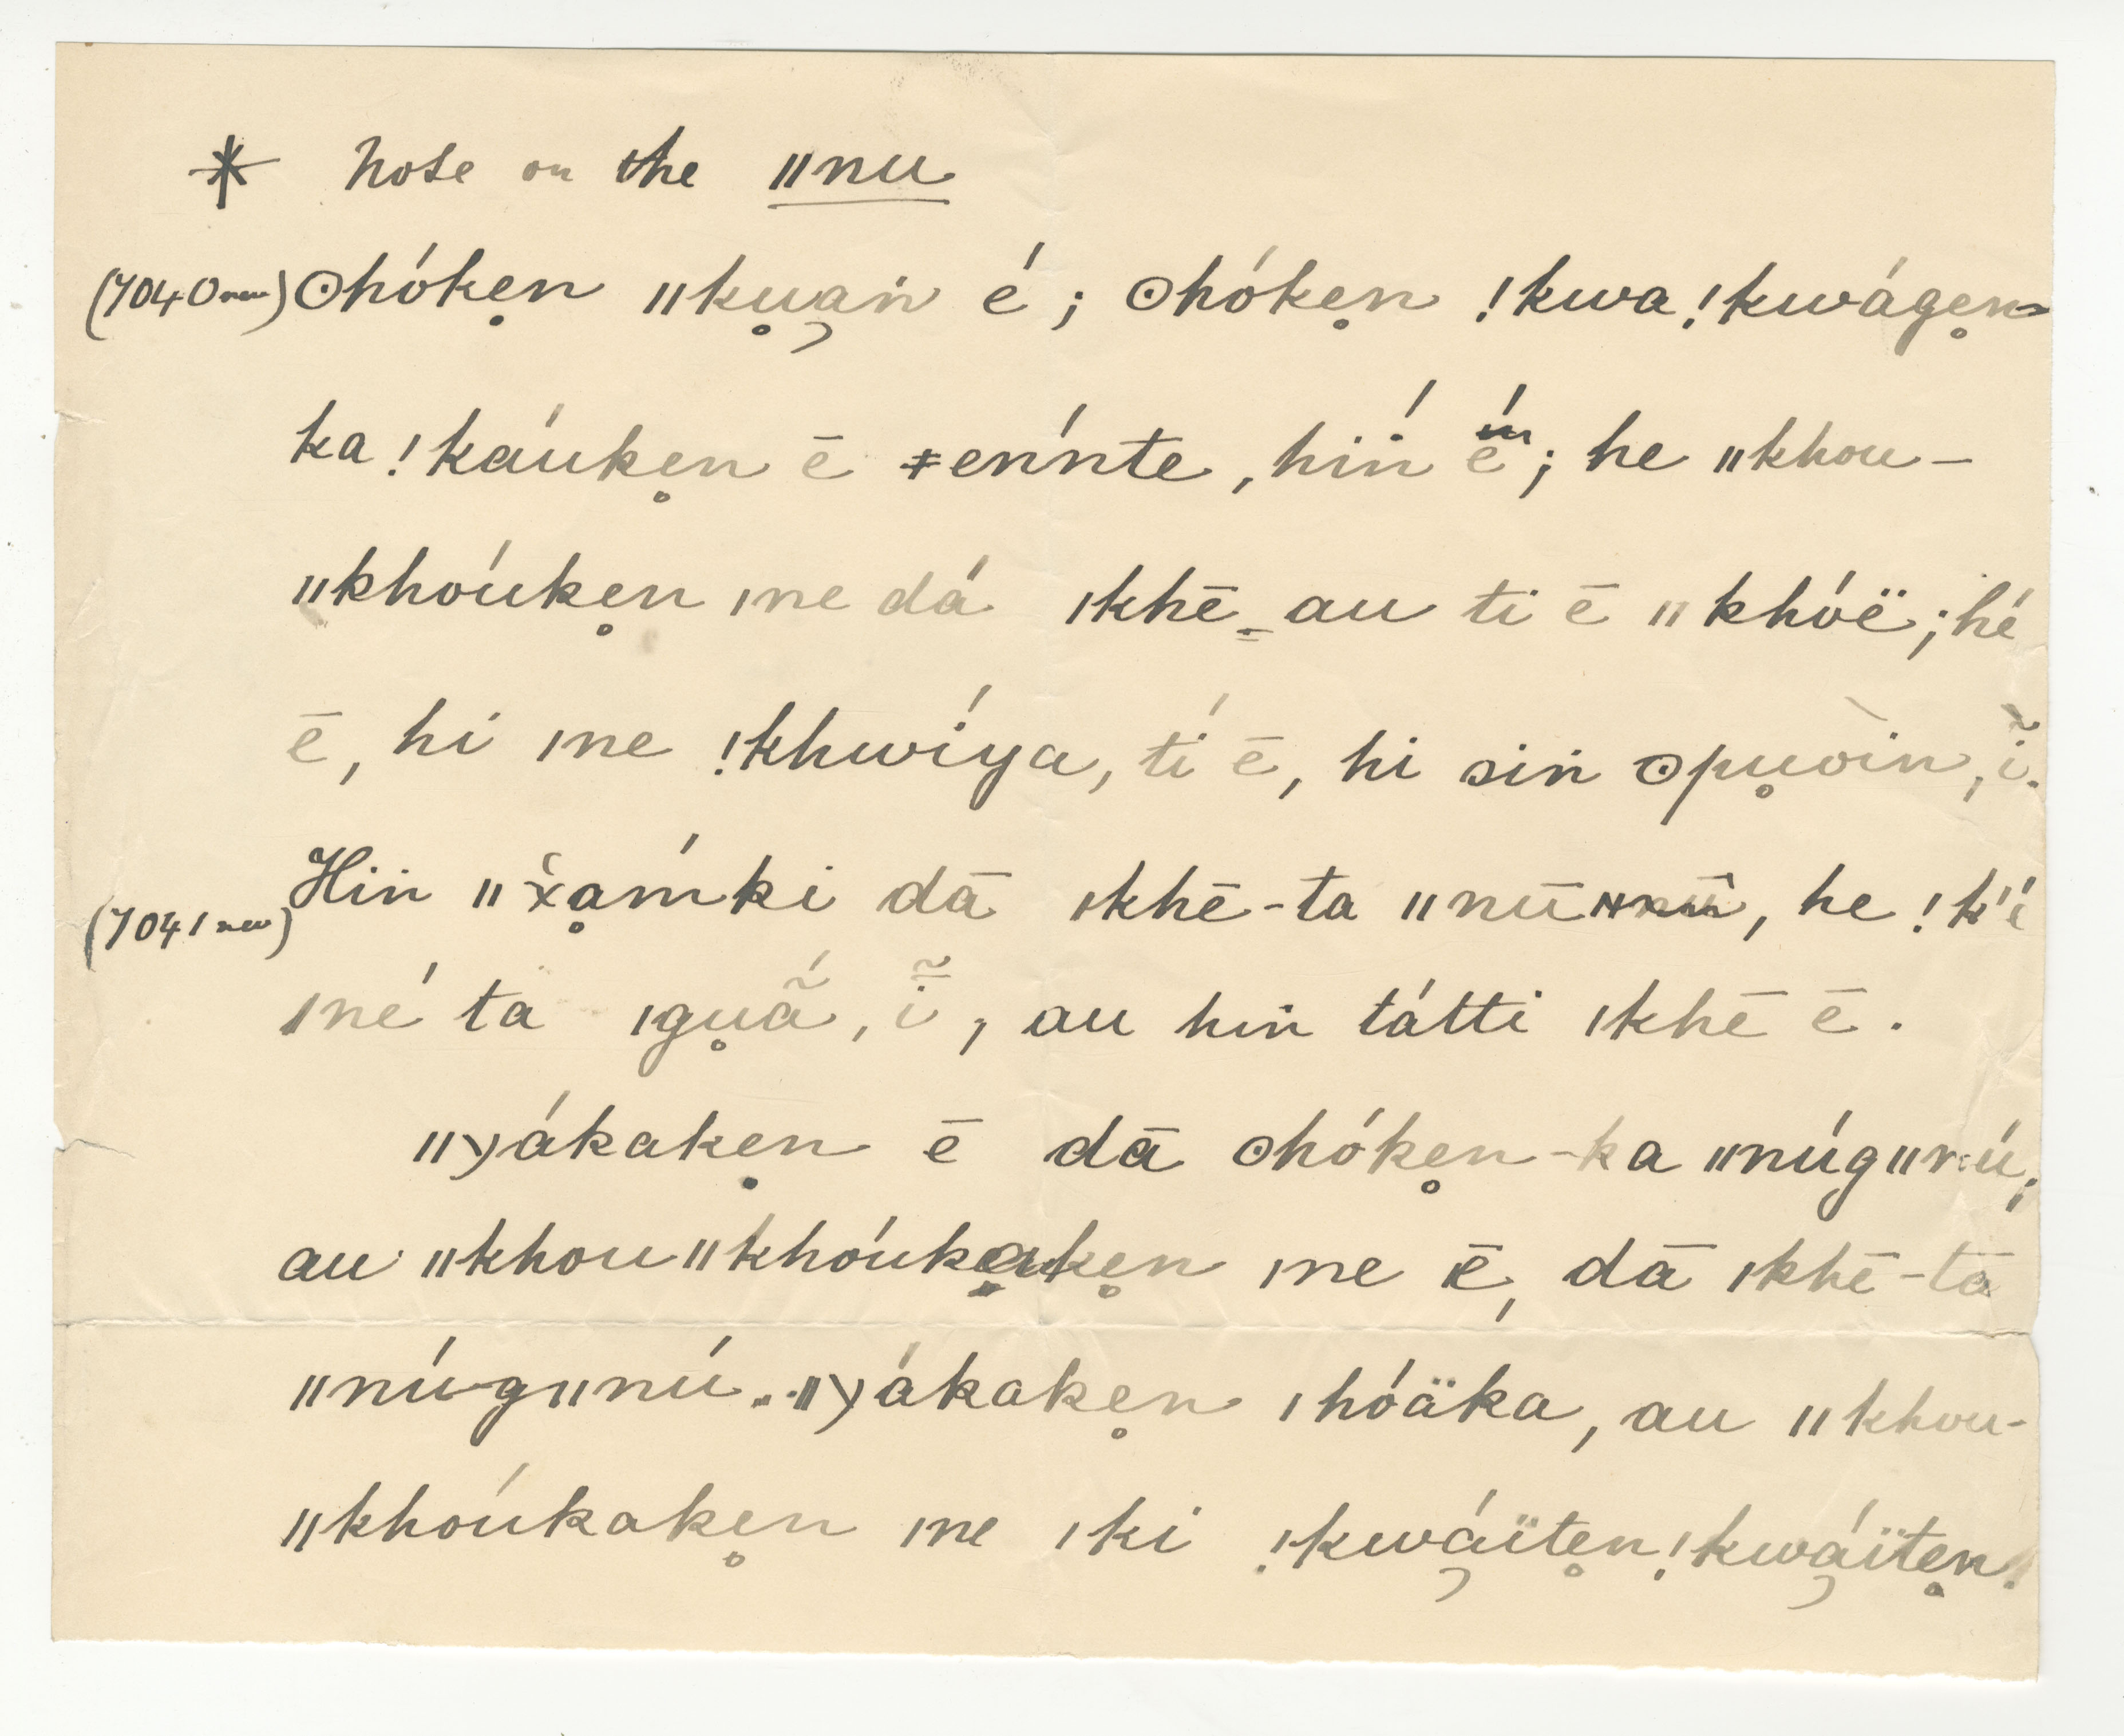 * Note on the ǁnu
(7040 rev) ʘhóke̥n ǁku̥a̦ṅ é; ʘhóke̥n !kwa!kwáge̥n-
ka !káuke̥n ē ǂeńnte, hiń é; he ǁkhou-
ǁkhóuke̥n ǀne dá ǀkhē_au ti ē ǁkhóë; hé
ē, hi ǀne !khwíya, tí ē, hi siṅ ʘpu̥òin, ĩ.
Hiṅ ǁx̣ḁḿki dā ǀkhē-ta ǁnū, he !k'é
(7041 rev)
ǀné ta ǀgu̥ā̃́, ĩ̄, au hiṅ tátti ǀkhē ē.
ǁχákake̥n ē dā ʘhóke̥n-ka ǁnúgǁnú;
au ǁkhouǁkhóuke̥n ǀne ē, dā ǀkhē-tā
ǁnúgǁnú. ǁχákake̥n ǀhóäka, au ǁkhou-
ǁkhóukake̥n ǀne ǀki !kwá̦ïte̥n!kwá̦ïte̥n.